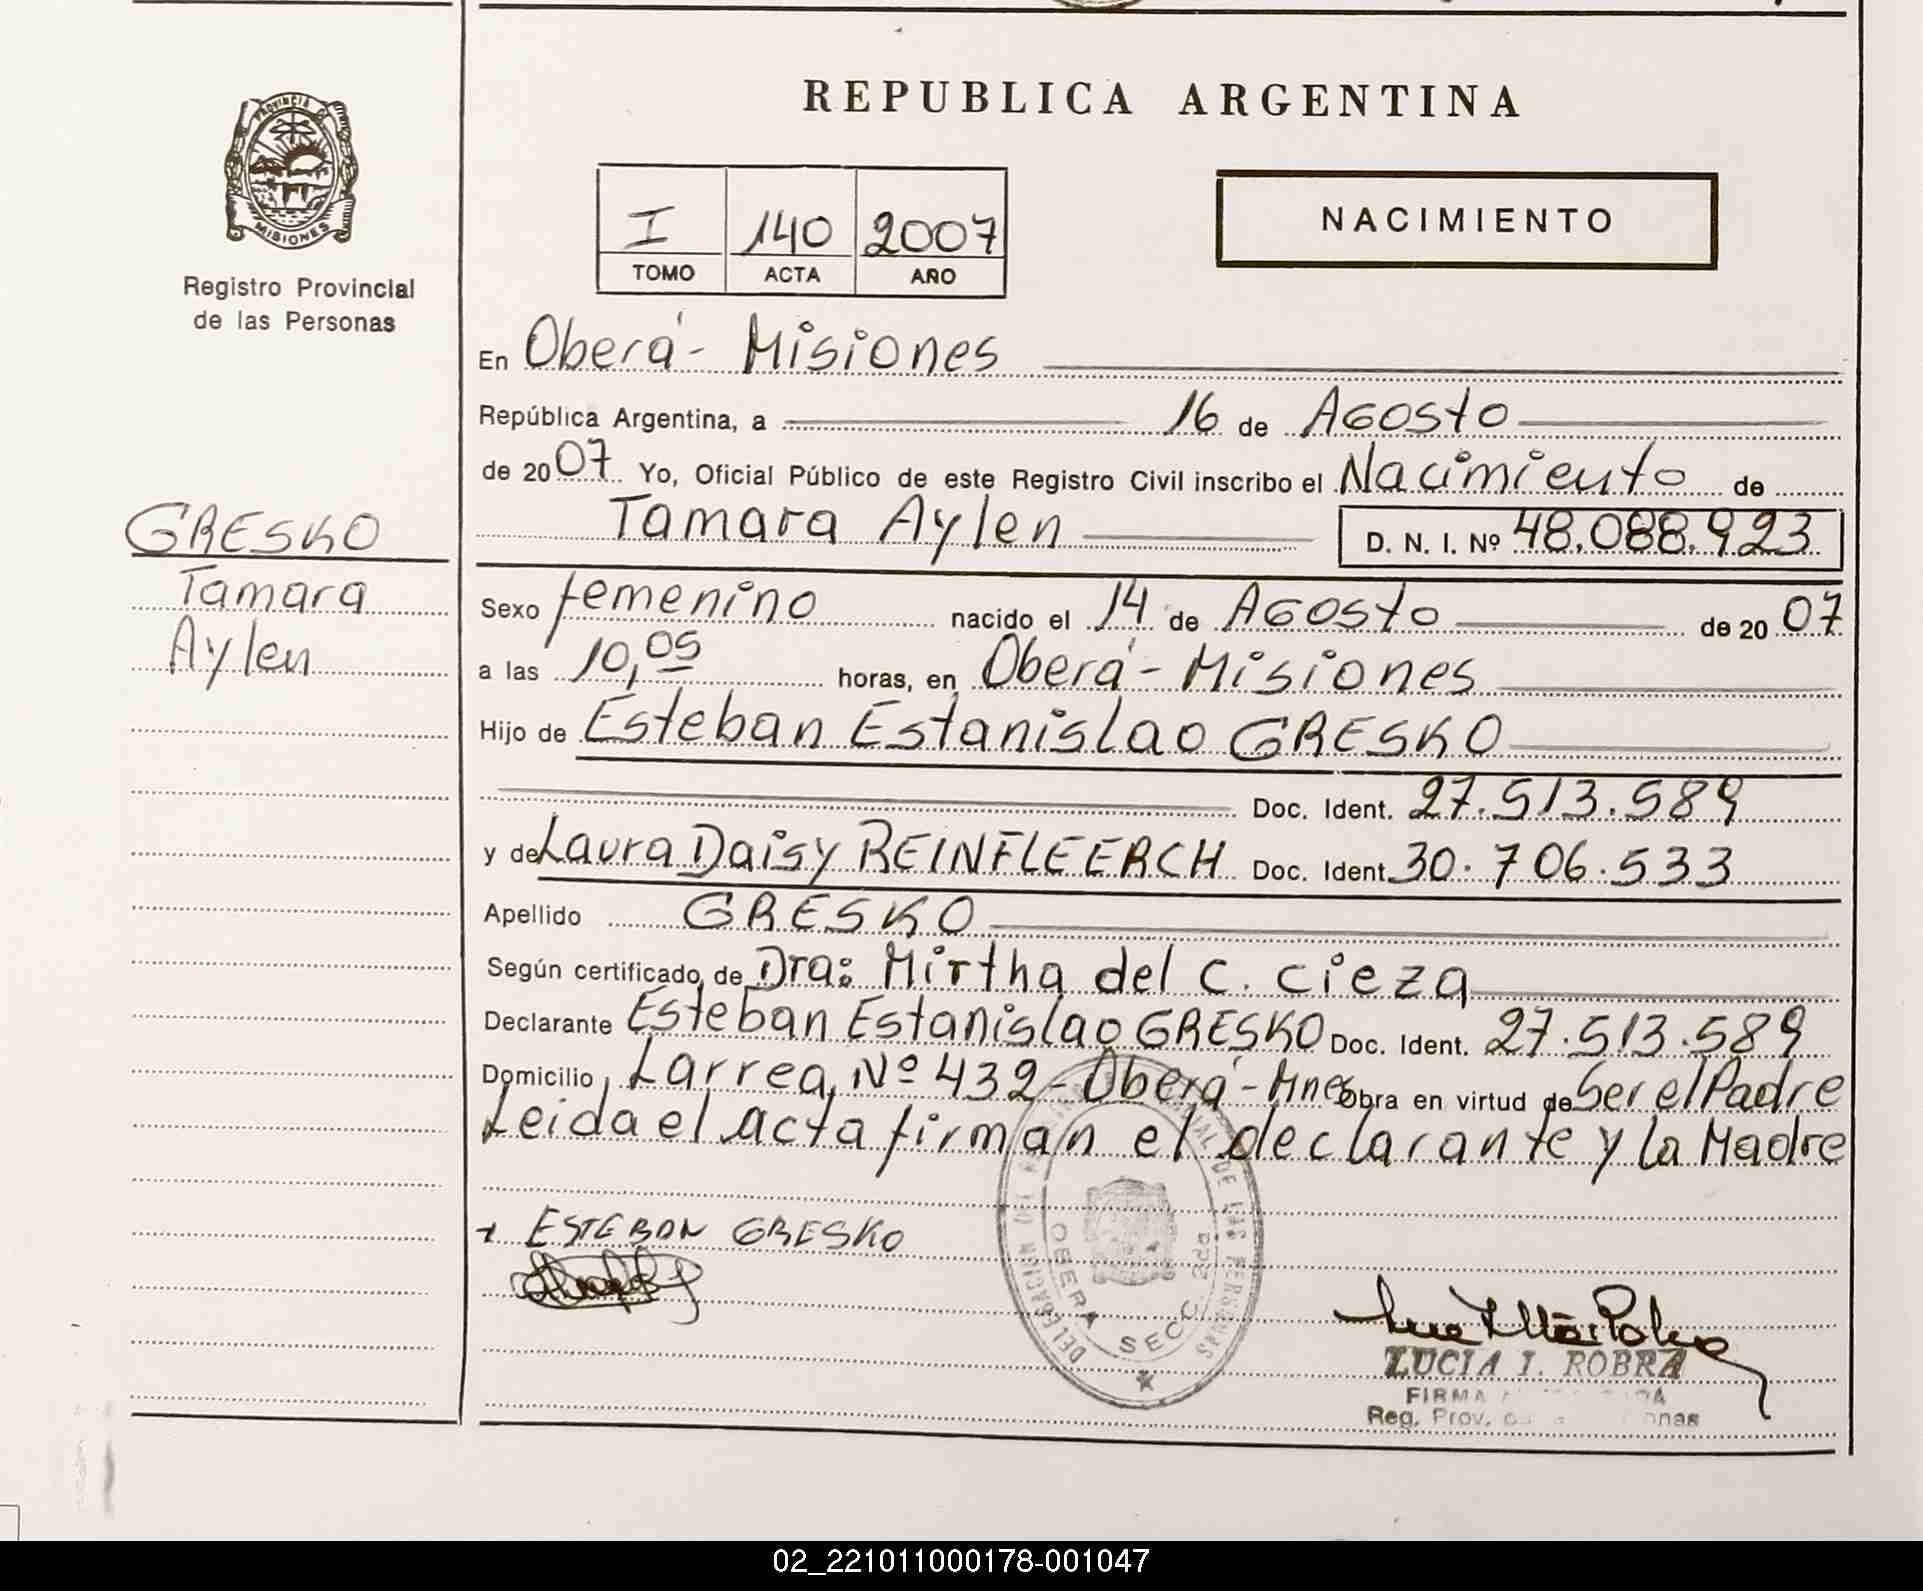 REPUBLICA ARGENTINA
PROVINCIA
MISIONES
Registro Provincial
de las Personas
I 140 2007
TOMO ACTA AÑO
NACIMIENTO
En Oberá - Misiones
República Argentina, a 16 de Agosto
de 2007 Yo, Oficial Público de este Registro Civil inscribo el Nacimiento de
Tamara Aylen D. N. I. Nº 48.088.923
GRESKO
Tamara
Aylen
Sexo femenino nacido el 14 de Agosto de 2007
a las 10,05 horas, en Oberá - Misiones
Hijo de Esteban Estanislao GRESKO
Doc. Ident. 27.513.589
y de Laura Daisy REINFLEERCH Doc. Ident. 30.706.533
Apellido GRESKO
Según certificado de Dra: Mirtha del C. Cieza
Declarante Esteban Estanislao GRESKO Doc. Ident. 27.513.589
Domicilio Larrea Nº 432 - Oberá - Mnes Obra en virtud de Ser el Padre
Leida el acta firman el declarante y la Madre
ESTEBAN GRESKO
DELEGACION DEL DE LAS PERSONAS
OBERA SECC. 2da
LUCIA I. ROBRA
FIRMA
Reg. Prov.
02_221011000178-001047